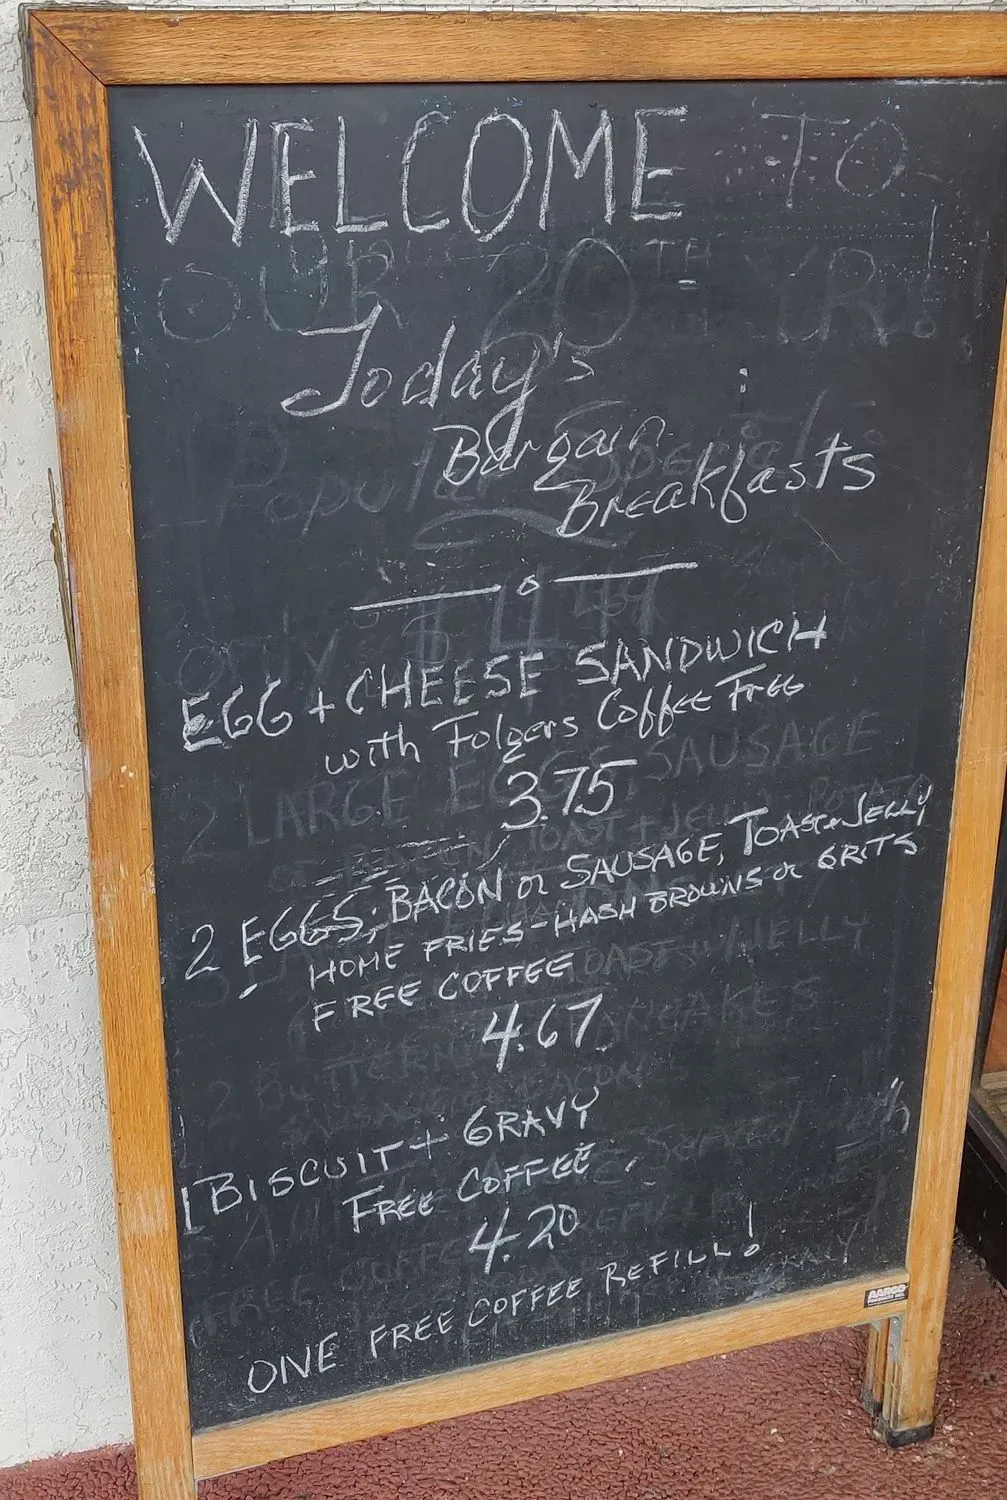 WELCOME TO
OUR 20TH YR!
Today's
Bargain
Breakfasts
EGG + CHEESE SANDWICH
with Folgers Coffee Free
3.75
2 EGGS; BACON or SAUSAGE, TOAST + JELLY
HOME FRIES - HASH BROWNS or GRITS
FREE COFFEE
4.67
1 BISCUIT + GRAVY
FREE COFFEE
4.20
ONE FREE COFFEE REFILL!
AARCO